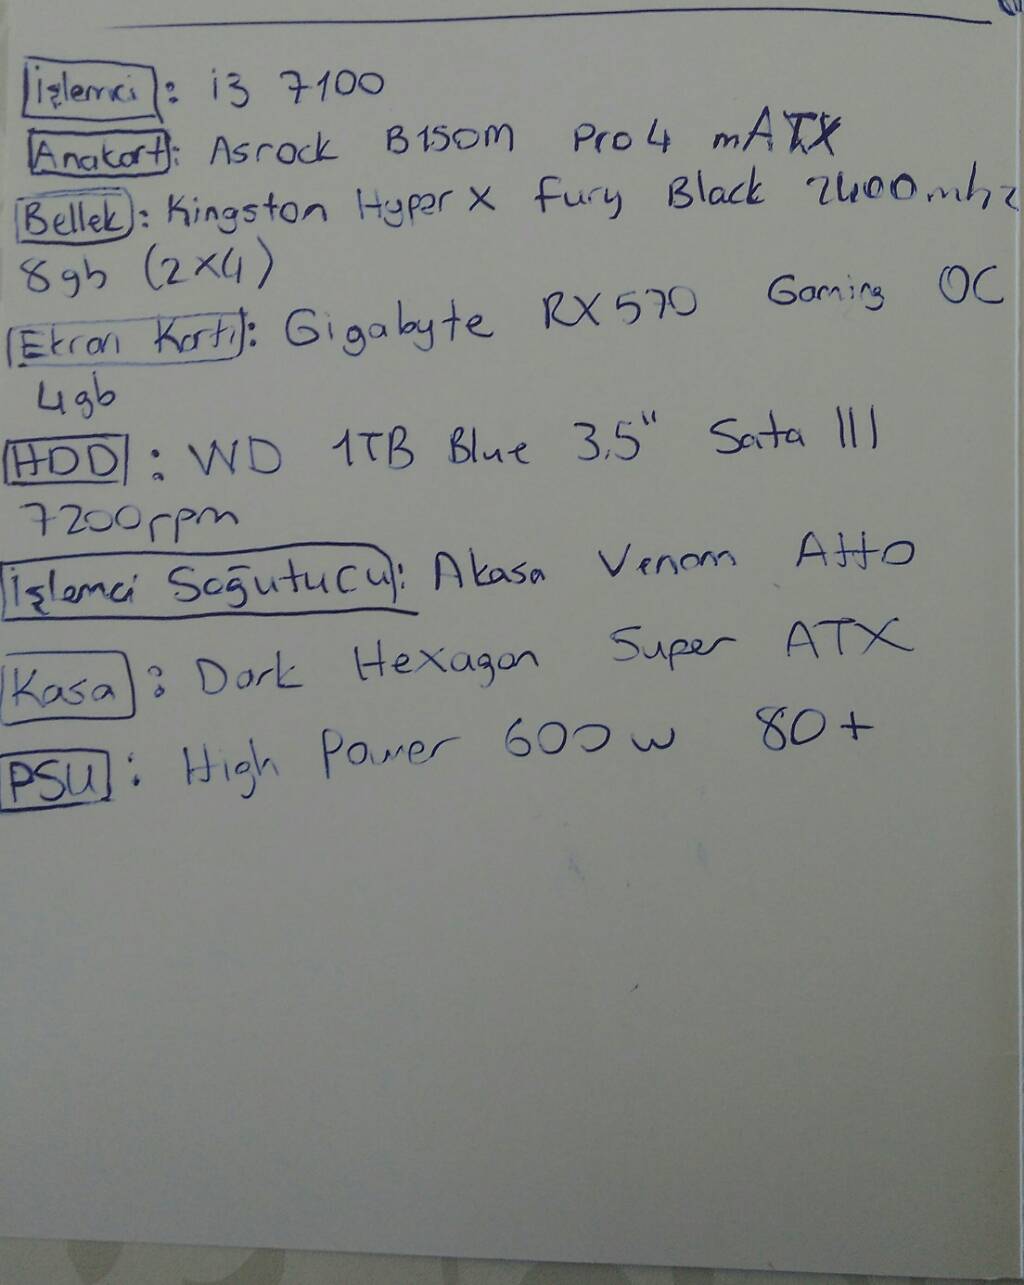 İşlemci: i3 7100
Anakart: Asrock B150M Pro4 mATX
Bellek: Kingston HyperX Fury Black 2400mhz
8gb (2x4)
Ekran Kartı: Gigabyte RX570 Gaming OC
4gb
HDD: WD 1TB Blue 3,5" Sata III
7200rpm
İşlemci Soğutucu: Akasa Venom Atto
Kasa: Dark Hexagon Super ATX
PSU: High Power 600w 80+